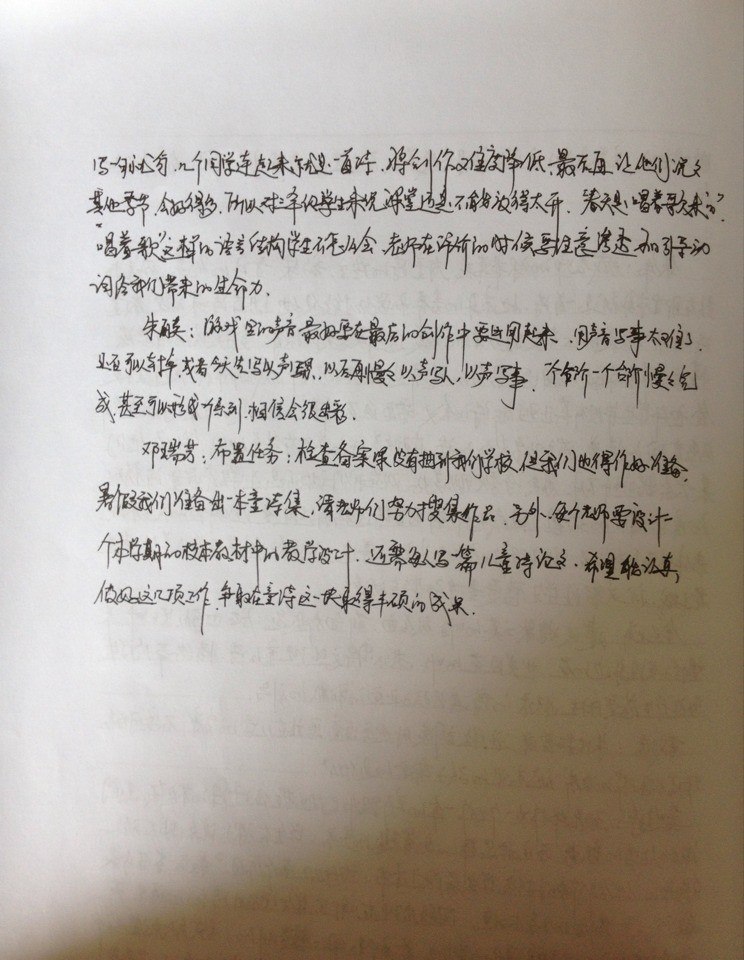 写一句试写，几个同学连起来就是一首诗，将创作难度降低。最后再让他们说
其他季节，会好得多，所以对年级学生来说课堂还是不能放得太开。"春天是唱着歌来的"，
"唱着歌"这样的语言结构学生不怎么会，老师在评价的时候要注意渗透和引导动
词给我们带来的生命力。
：游戏里的声音最好要在最后的创作中要运用起来，用声音写事太难了，
还可以合作，或者今天先写以声，以后再慢慢以声写人，以声写事，一个台阶一个台阶慢慢完
成，甚至可以形成一个系列，相信会很出彩。
邓瑞芳：布置任务：检查备案课没有抽到我们学校，但我们也得作好准备，
暑假我们准备出一本童诗集，请老师们努力搜集作品。另外，每个老师要设计一
个本学期的校本教材中的教学设计，还需每人写一篇儿童诗论文，希望认真
做好这几项工作，争取在童诗这一块取得丰硕的成果。